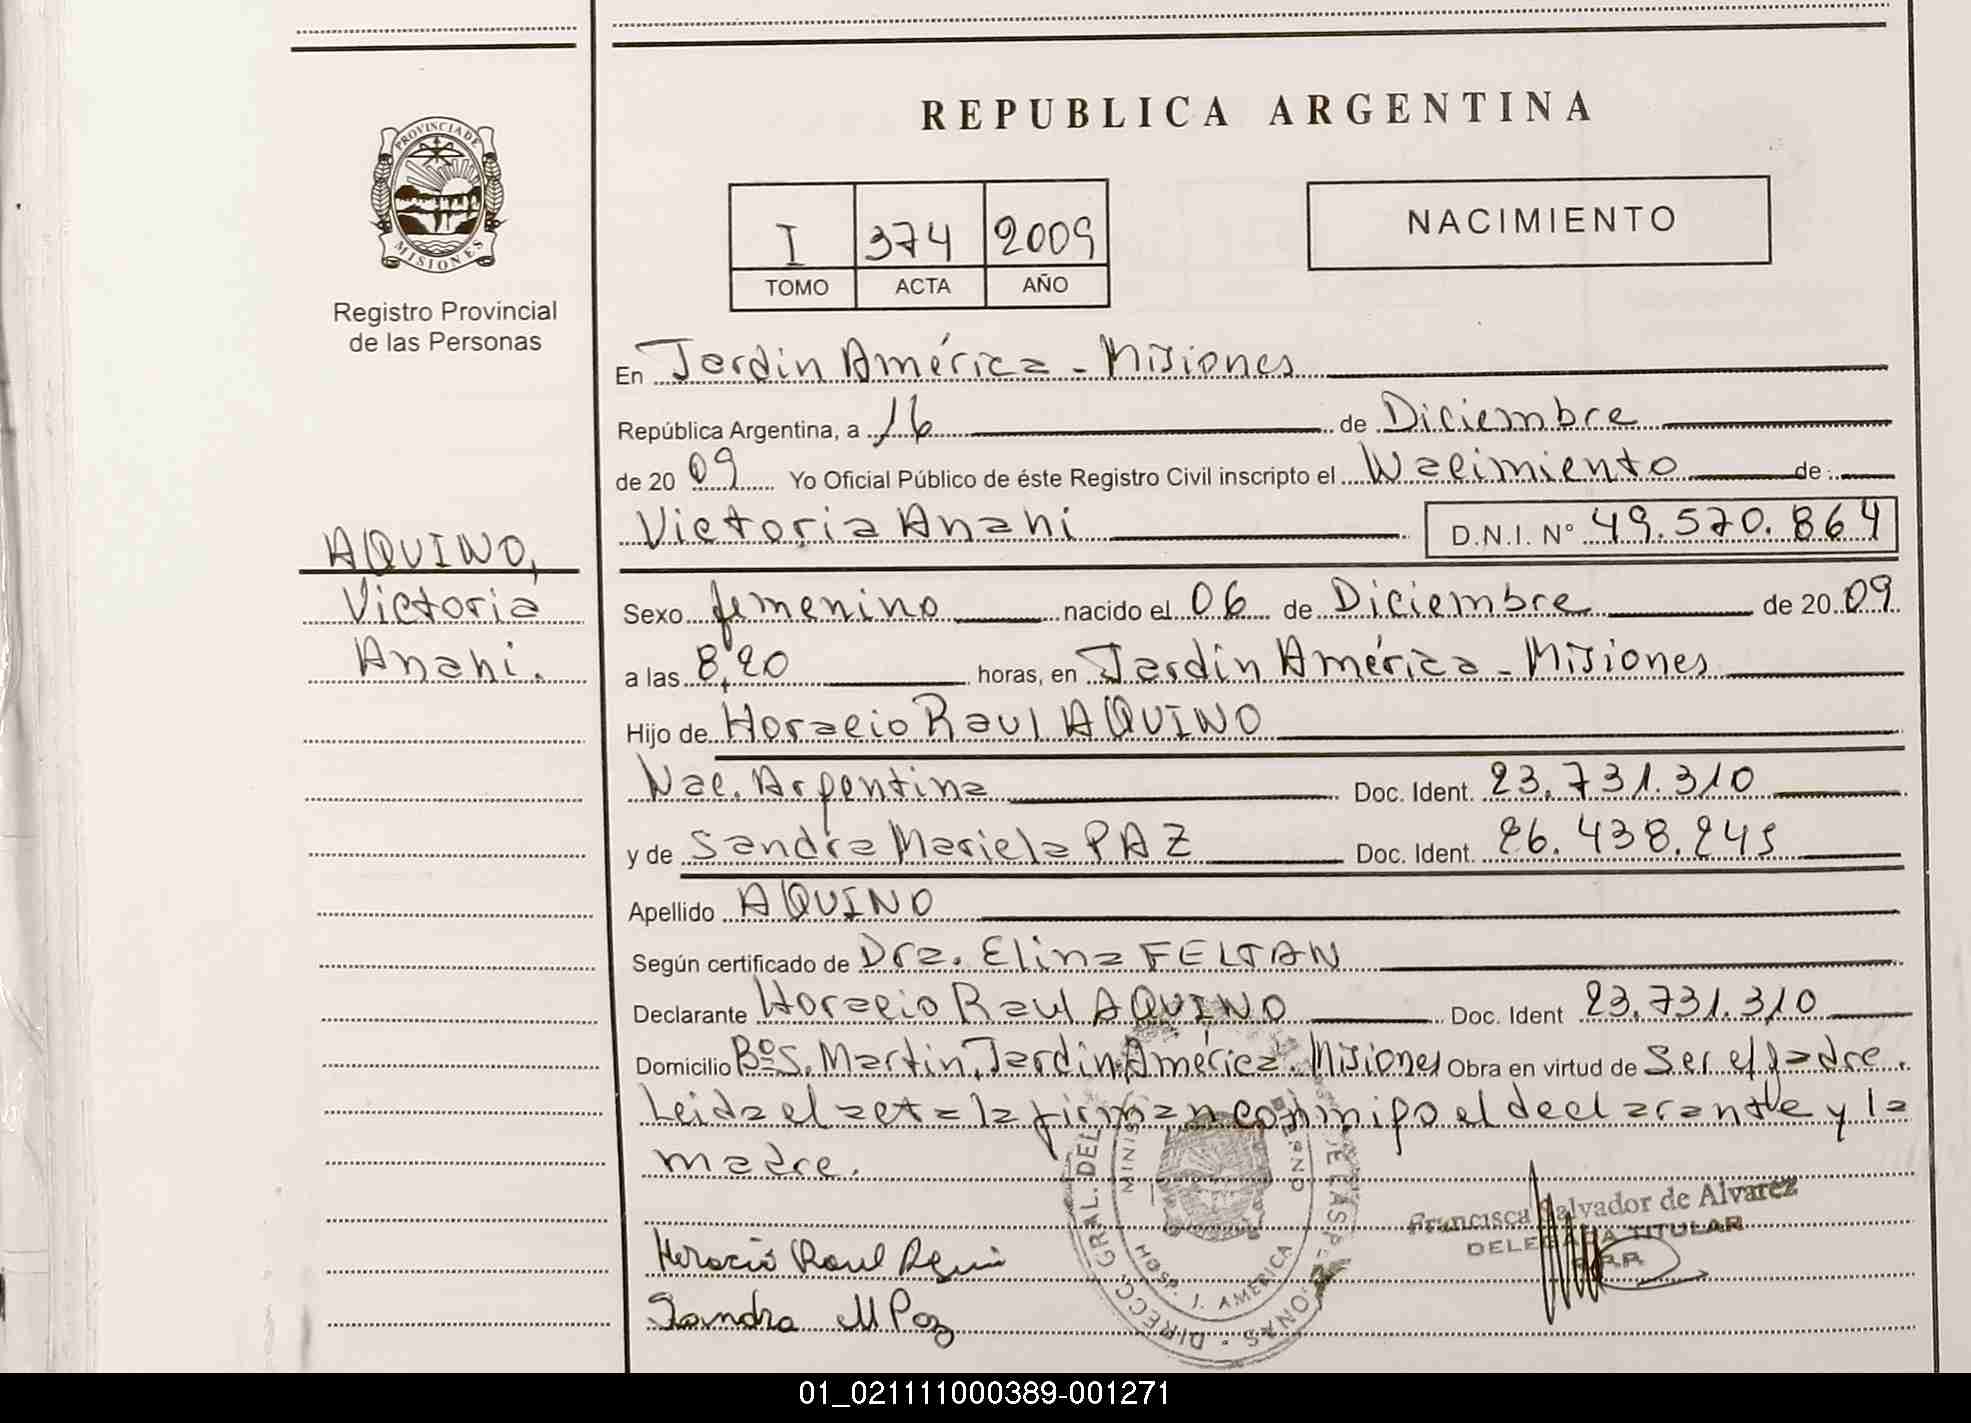 REPUBLICA ARGENTINA
PROVINCIA DE
MISIONES
Registro Provincial
de las Personas
I 374 2009
TOMO ACTA AÑO
NACIMIENTO
En Jardin América - Misiones
República Argentina, a 16 de Diciembre
de 2009 Yo Oficial Público de éste Registro Civil inscripto el Nacimiento de
Victoria Anahi D.N.I. N° 49.570.864
AQUINO,
Victoria
Anahi.
Sexo femenino nacido el 06 de Diciembre de 2009
a las 8,20 horas, en Jardin América - Misiones
Hijo de Horacio Raul AQUINO
Nac. Argentina Doc. Ident. 23.731.310
y de Sandra Mariela PAZ Doc. Ident. 26.438.245
Apellido AQUINO
Según certificado de Dra. Elina FELTAN
Declarante Horacio Raul AQUINO Doc. Ident 23.731.310
Domicilio Bº S. Martin, Jardin América. Misiones Obra en virtud de ser el padre.
Leida el acta la firman conmigo el declarante y la
madre.
Francisca Salvador de Alvarez
DELEGADA TITULAR
Horacio Raul
Sandra M Paz
DIRECC. GRAL. DEL
HOSP. J. AMERICA
01_021111000389-001271